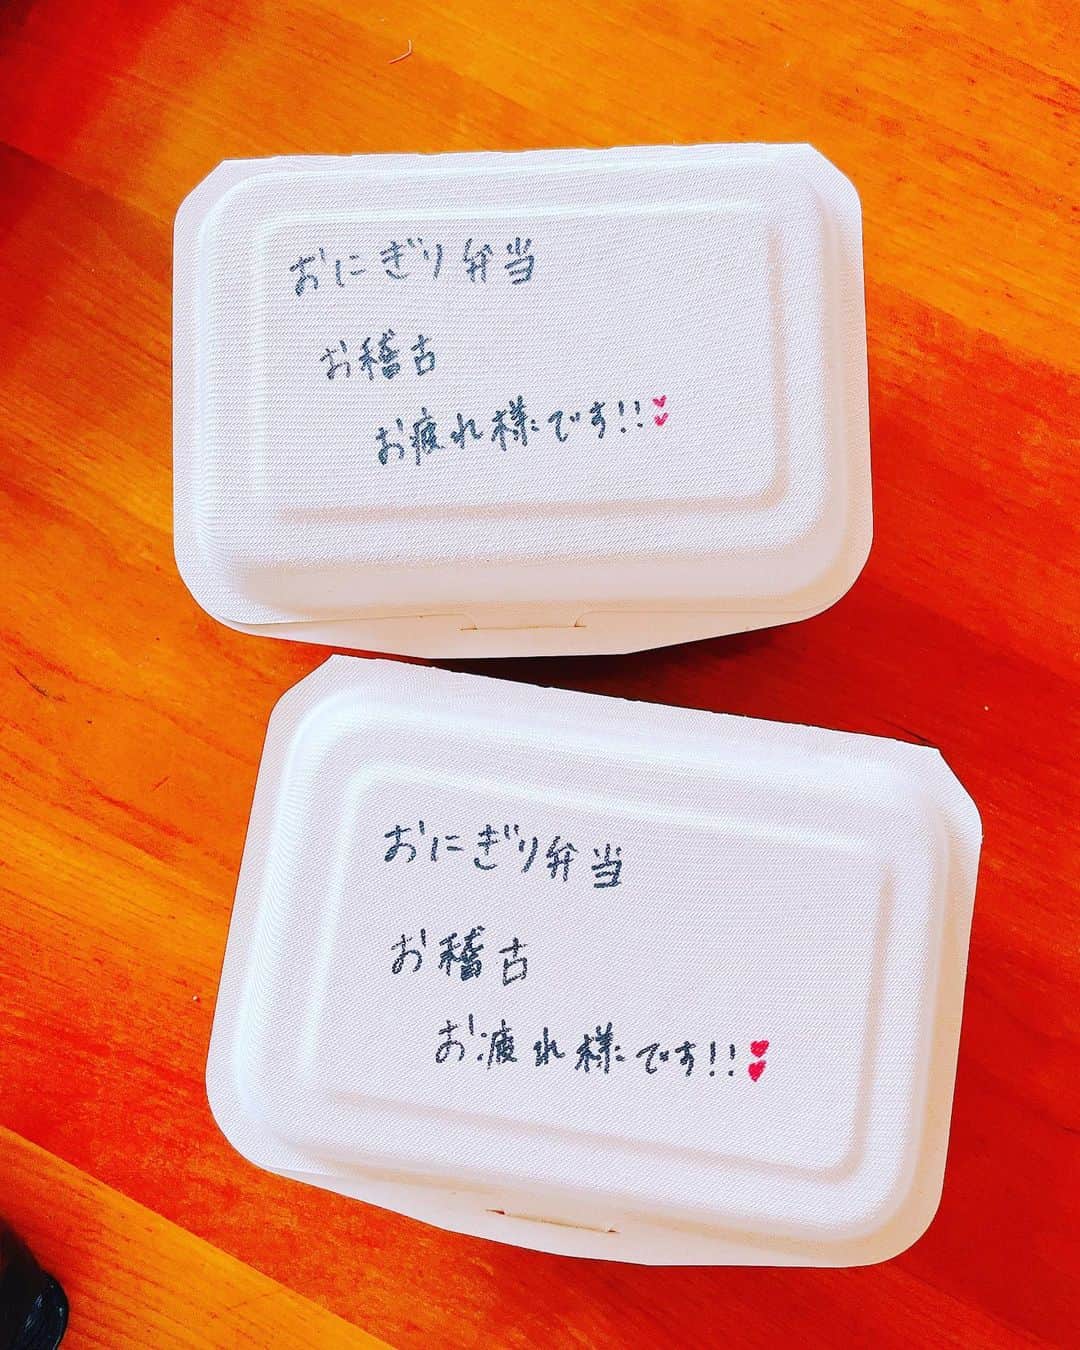 おにぎり弁当
お稽古
お疲れ様です!!
おにぎり弁当
お稽古
お疲れ様です!!